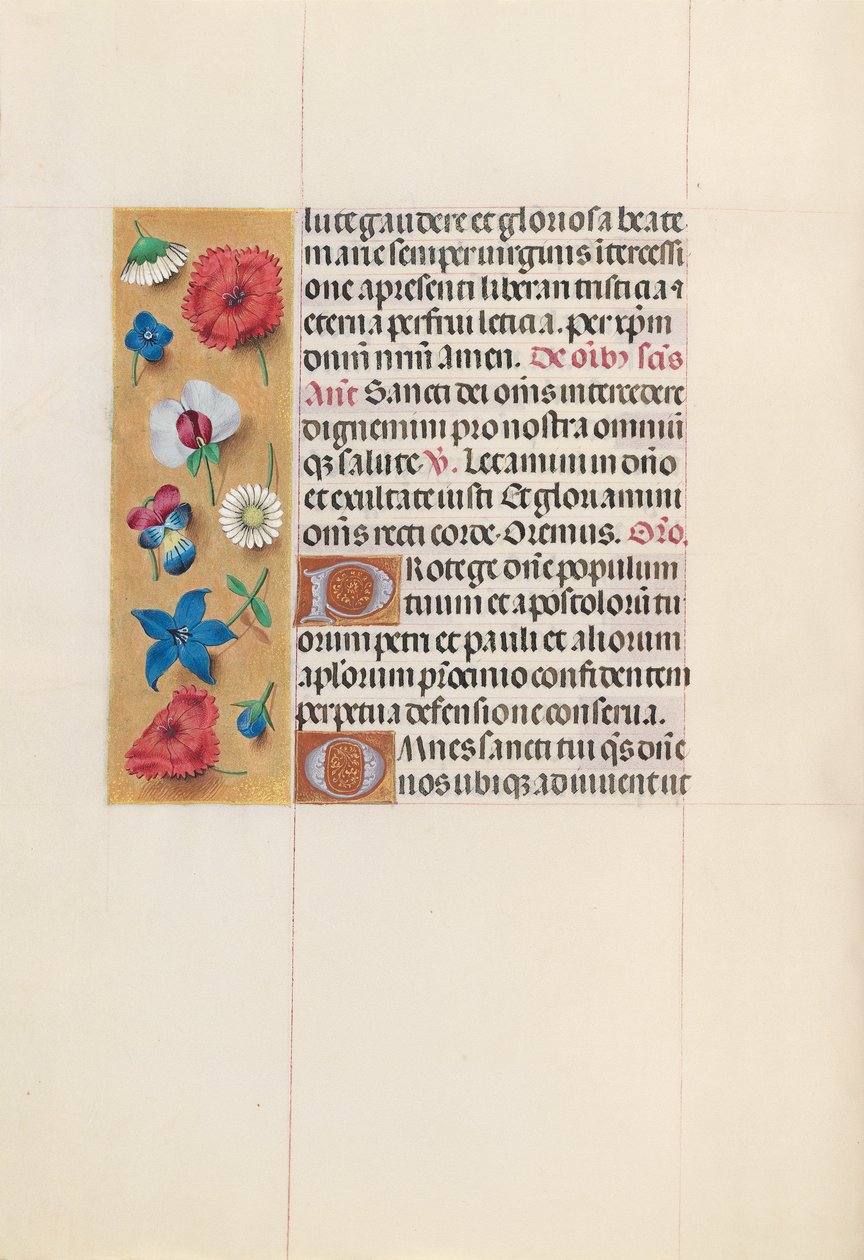 lute gaudere et gloriosa beate
marie semper uirginis ītercessi
one a presenti liberari tristicia ⁊
eterna perfrui leticia. per xp̄m
dnm̄ nrm̄ Amen. De oībꝰ sc̄is
An̄t Sancti dei om̄s intercedere
dignemini pro nostra omniū
qꝫ salute. ℣. Letamini in dn̄o
et exultate iusti Et gloriamini
om̄s recti corde. Oremus. Or̄o.
PRotege dn̄e populum
tuum et apostolorū tu
orum petri et pauli et aliorum
apl̄orum pr̄ocinio confidentem
perpetua defensione conserua.
OMnes sancti tui q̄s dn̄e
nos ubiqꝫ adiuuent ut